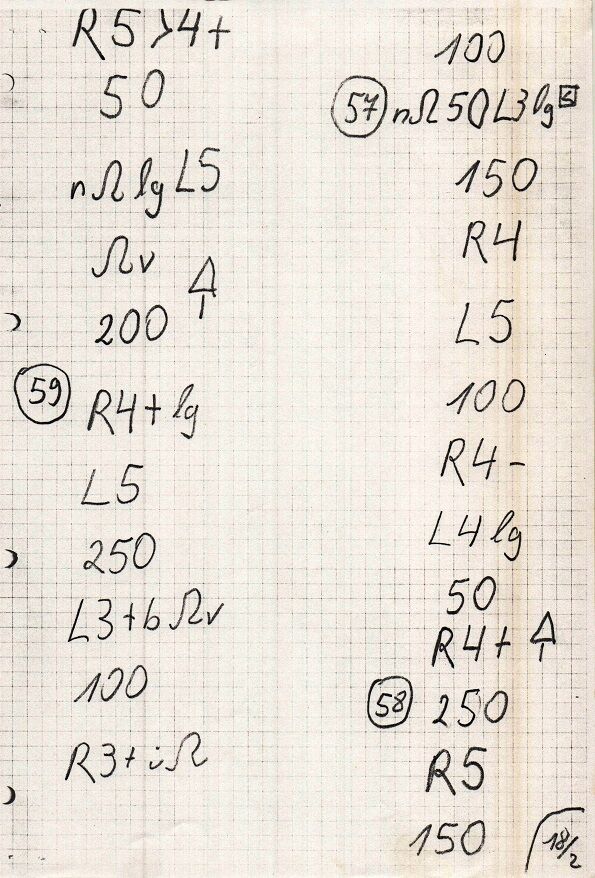 R5>4+
50
nΩ lg L5
Ωv
200
59
R4+ lg
L5
250
L3+b Ωv
100
R3+iΩ
100
57 nΩ 50 L3 lg S
150
R4
L5
100
R4-
L4 lg
50
R4+
58 250
R5
150
18/2